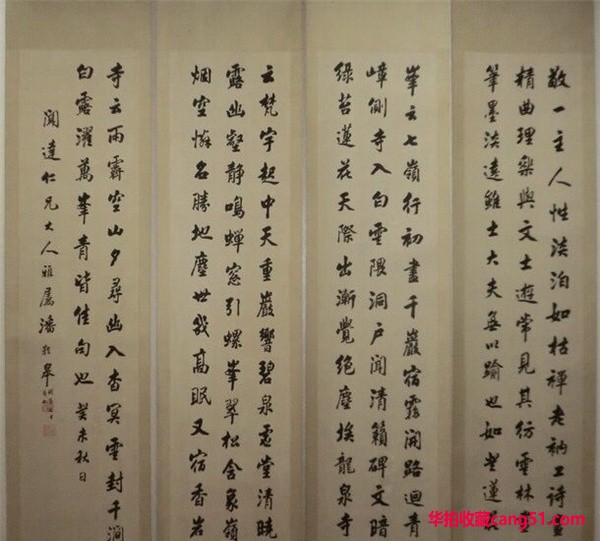 敬一主人性淡泊如枯禅老衲工诗画
精曲理乐与文士游常见其仿云林画
笔墨淡远虽士大夫无以踰也如望莲花
峯云七嶺行初盡千巖宿霧開路迴青
嶂側寺入白雲隈洞户聞清籟碑文暗
緑苔蓮花天際出漸覺絶塵埃龍泉寺
云梵宇起中天重巖響碧泉虚堂清曉
露幽壑静鳴蟬窓引螺峯翠松含象嶺
烟空憐名勝地塵世幾高眠又宿香岩
寺云雨霽空山夕尋幽入杳冥雲封千澗
白露濯萬峯青皆佳句也癸未秋日
聞達仁兄大人雅屬潘齡皋
华拍收藏cang51.com